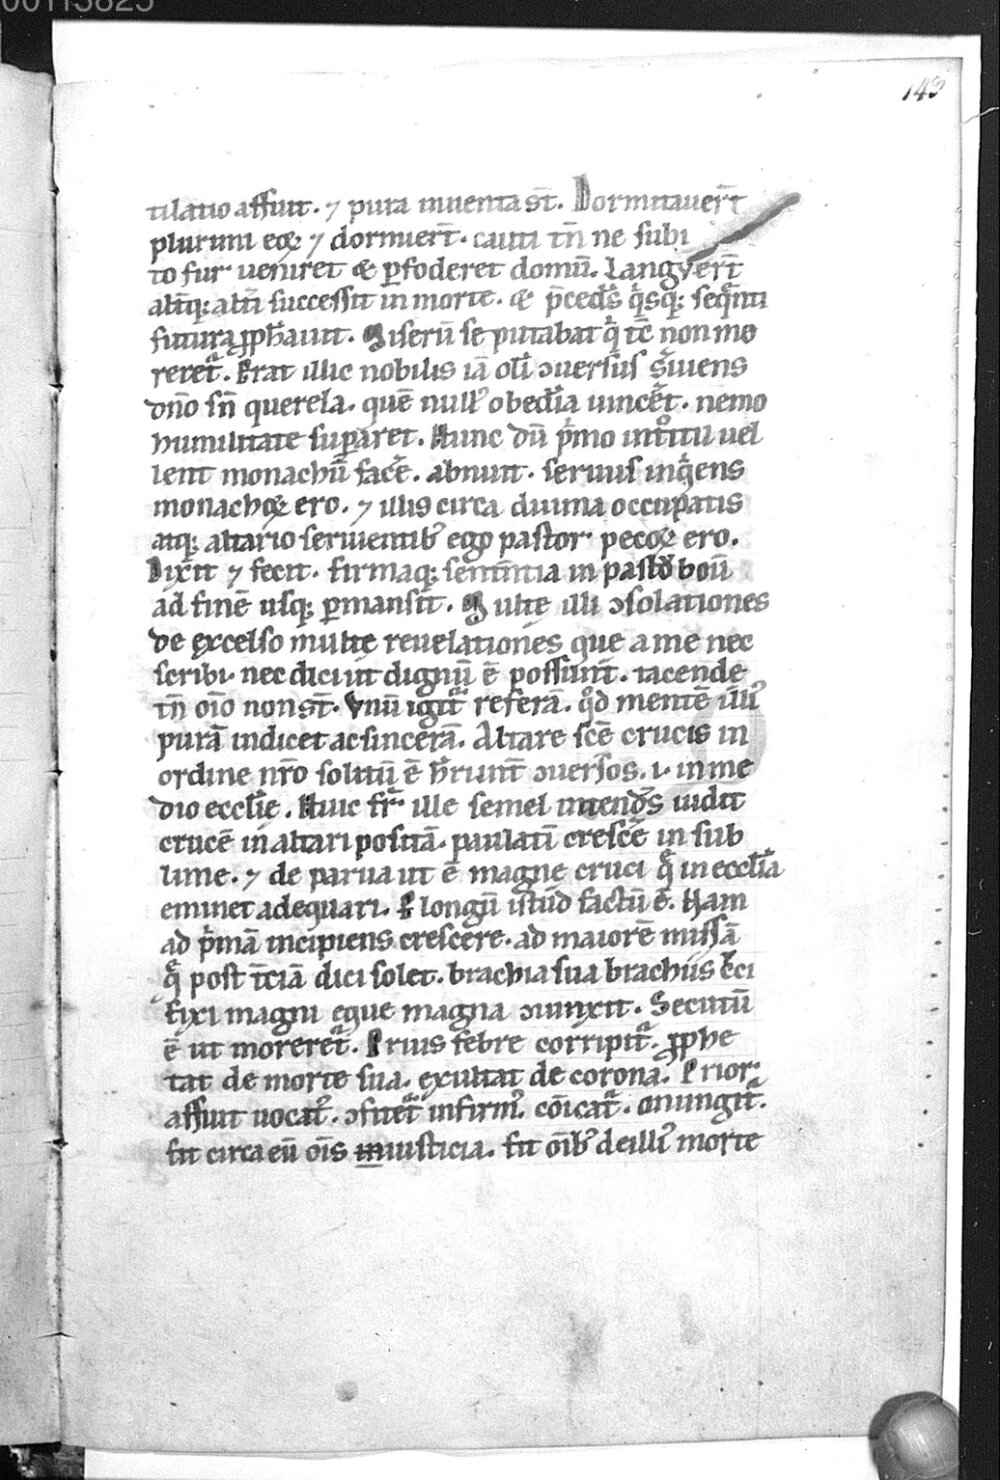 00113825
143
tilatio affuit. ⁊ pura inuenta st̄. Dormitauer̄t
plurimi eoꝝ ⁊ dormier̄t. cauti tn̄ ne subi
to fur ueniret & ꝑfoderet domū. Languer̄t
alt̓iq; alt̓i successit in morte. & p̄cedēs qͥsq; seqͣnti
futura ꝓph̄auit. Miserū se putabat qͥ tc̄ non mo
reret᷑. Erat illic nobilis iā oli ↄuersus s̓uiens
dn̄o sn̄ querela. quē null᷒ obed̄ia uincēt. nemo
humilitate suꝑaret. Hunc dū pͥmo int̓oitu uel
lent monachū facē. abnuit. seruus inqͥens
monachoꝝ ero. ⁊ illis circa diuina occupatis
atq; altario seruientib᷒ ego pastor pecoꝝ ero.
Dixit ⁊ fecit. firmaq; sententia in pastō boū
ad finē usq; ꝑmansit. Multę illi ↄsolationes
de excelso multę reuelationes que a me nec
scribi. nec dici ut dignū ē possunt. tacende
tn̄ oīo non st̄. Vnū igit᷑ referā. qd̓ mentē illi᷒
purā indicet ac sincerā. Altare scē crucis in
ordine nr̄o solitū ē h̄runt̄ ↄuersos. i. in me
dio eccl̄ię. Huic fr̄ ille semel intendēs uidit
crucē in altari positā. paulatī crescē in sub
lime. ⁊ de parua ut ē magnę cruci qͣ in eccl̄ia
eminet adequari. E longū istud factū ē. Nam
ad pͥmā incipiens crescere. ad maiorē missā
qͣ post t̄ciā dici solet. brachia sua brachiis c̄ci
fixi magni eque magna ↄiunxit. Secutū
ē ut moreret᷑. Prius febre corripit᷑. ꝓphe
tat de morte sua. exultat de corona. Prior
affuit uocat᷒. ↄfuet᷑ infirm᷒. cōicat᷑. inungit᷑.
fit circa eū oīs iniusticia. fit oīb᷒ de illi᷒ morte